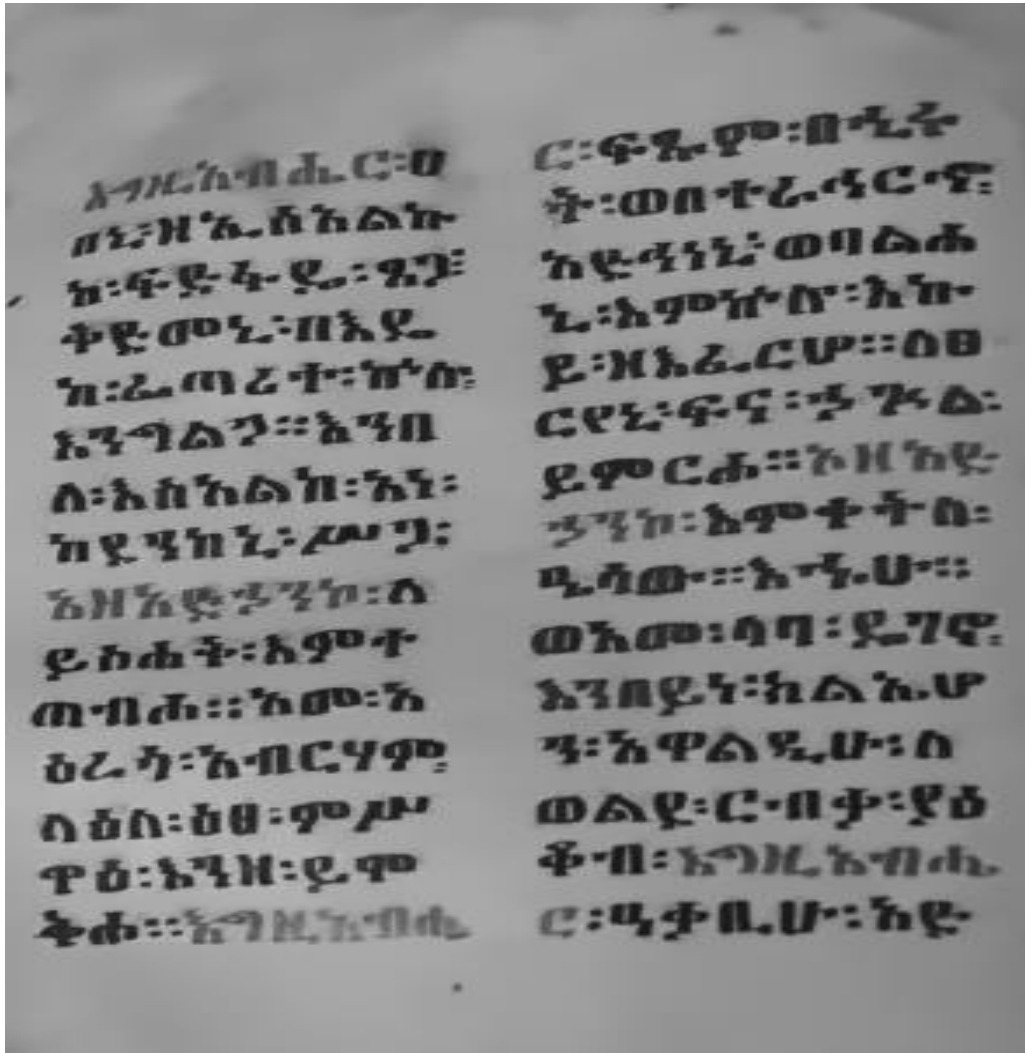 እግዚአብሔር፡ዐ
ዘኒ፡ዘኢሰአልኩ
ከ፡ፍድፋዴ፡ጸጋ፡
ቅድመኒ፡በእዴ
ከ፡ፈጣሪተ፡ኵሉ፡
እንግልጋ፡፡እንበ
ለ፡እስአልከ፡አነ፡
ከደንከኒ፡ሥጋ፡
እዘአድኃንኮ፡ለ
ይስሐቅ፡እምተ
ጠብሖ፡፡አመ፡አ
ዕረጎ፡አብርሃም፡
ላዕለ፡ዕፀ፡ምሥ
ዋዕ፡እንዘ፡ይሞ
ቅሖ፡፡እግዚአብሔ
ር፡ፍጹም፡በኂሩ
ት፡ወበተራኅርኆ፡
አድኅነኒ፡ወባልሐ
ኒ፡እምኵሉ፡እኩ
ይ፡ዘእፈርሆ፡፡ለፀ
ርየኒ፡ፍና፡ኃጕል፡
ይምርሖ፡፡ኦዘአድ
ኀንኮ፡እምቀትለ፡
ዔሳው፡፡እኁሁ፡፡
ወአመ፡ላባ፡ዴግኖ፡
እንበይነ፡ክልኤሆ
ን፡አዋልዲሁ፡ለ
ወልደ፡ርብቃ፡ያዕ
ቆብ፡እግዚአብሔ
ር፡ዓቃቢሁ፡አድ